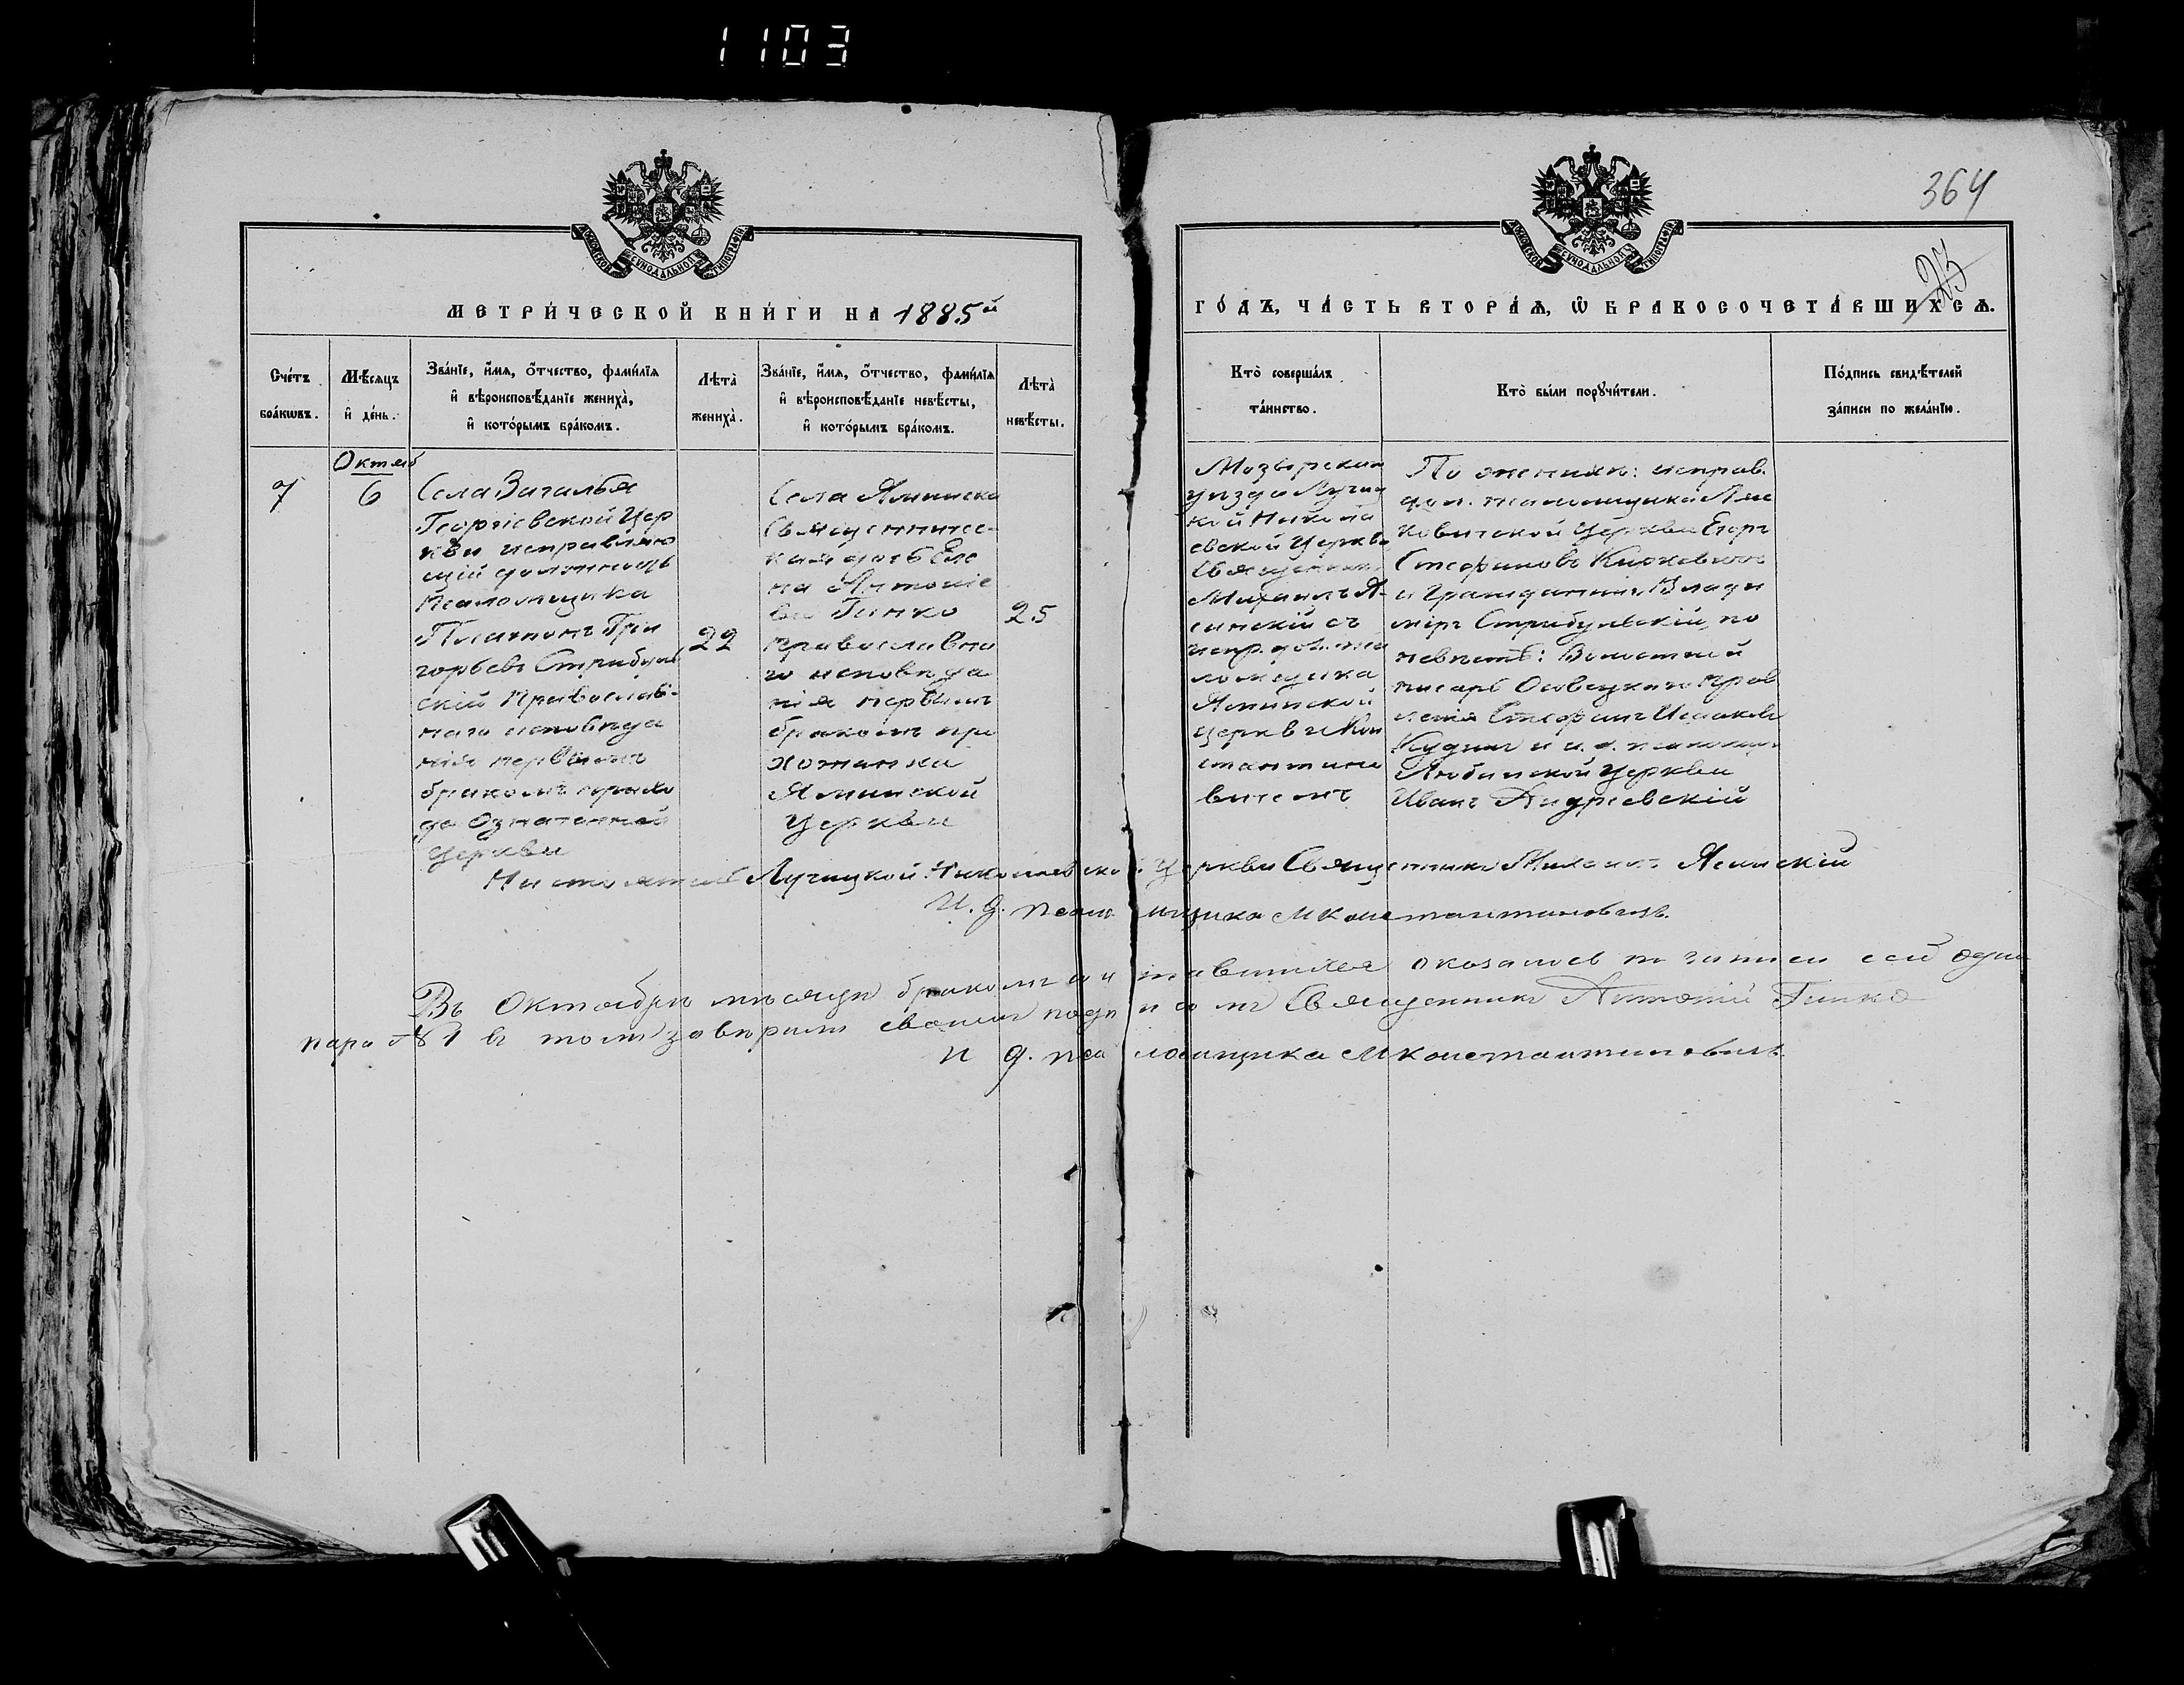 1103
364
213
МОСКОВСКОЙ СѴНОДАЛЬНОЙ ТИПОГРАФІИ
МОСКОВСКОЙ СѴНОДАЛЬНОЙ ТИПОГРАФІИ
МЕТРИ́ЧЕСКОЙ КНИ́ГИ НА 1885й
ГО́ДЪ, ЧА́СТЬ ВТОРА́Ѧ, Ѽ БРАКОСОЧЕТА́ВШИХСѦ.
Сче́тъ бра́кѡвъ.
Мѣ́сѧцъ и҆ де́нь.
Зва́нїе, и҆́мѧ, ѻ҆́тчество, фами́лїѧ
и҆ вѣроисповѣ́данїе жениха̀,
и҆ кото́рымъ бра́комъ.
Лѣта̀ жениха̀.
Зва́нїе, и҆́мѧ, ѻ҆́тчество, фами́лїѧ
и҆ вѣроисповѣ́данїе невѣ́сты,
и҆ кото́рымъ бра́комъ.
Лѣта̀ невѣ́сты.
Кто̀ соверша́лъ
та́инство.
Кто̀ бы́ли порꙋчи́тели.
По́дпись свидѣ́телей
за́писи по жела́нїю.
Октяб
7
6
Села Загалья
Георгіевской Цер
кви исправляю
щій должность
Псаломщика
Платонъ Гри
горьевъ Стрибуль
скій Православ-
наго исповѣда
нія первымъ
бракомъ прихо
да Означенной
Церкви
22
Села Яминска
Священничес-
кая дочь Еле
на Антоніе
ва Гинко
православна
го исповѣда
нія первымъ
бракомъ при
хожанка
Яминской
Церкви
25
Мозырскаго
уѣзда Лучиц
кой Никола
евской Церкви
Священник
Михаилъ Я-
синскій съ
испр. долж. пса
ломщика
Яминской
Церкви Кон
стантино
вичемъ
По женихѣ: исправ.
дол. псаломщика Ляс
ковичской Церкви Егоръ
Стефановъ
и Гражданинъ Влади
міръ Стрибульскій, по
невѣстѣ: Волостной
писарь Осовецкаго прав
ленія Стефанъ Исааковъ
и и. д. псаломщ.
Любанской Церкви
Иванъ Андріевскій
Настоятель Лучицкой Николаевской Церкви Священникъ Михаилъ Ясинскій
И. д. псаломщика М Константиновичъ.
Въ Октябрѣ мѣсяцѣ бракомъ сочетавшихся оказалось по записи сей одна
пара № 1 въ томъ завѣряемъ своимъ подписомъ Священникъ Антоній Гинко
И д. псаломщика М Константиновичъ